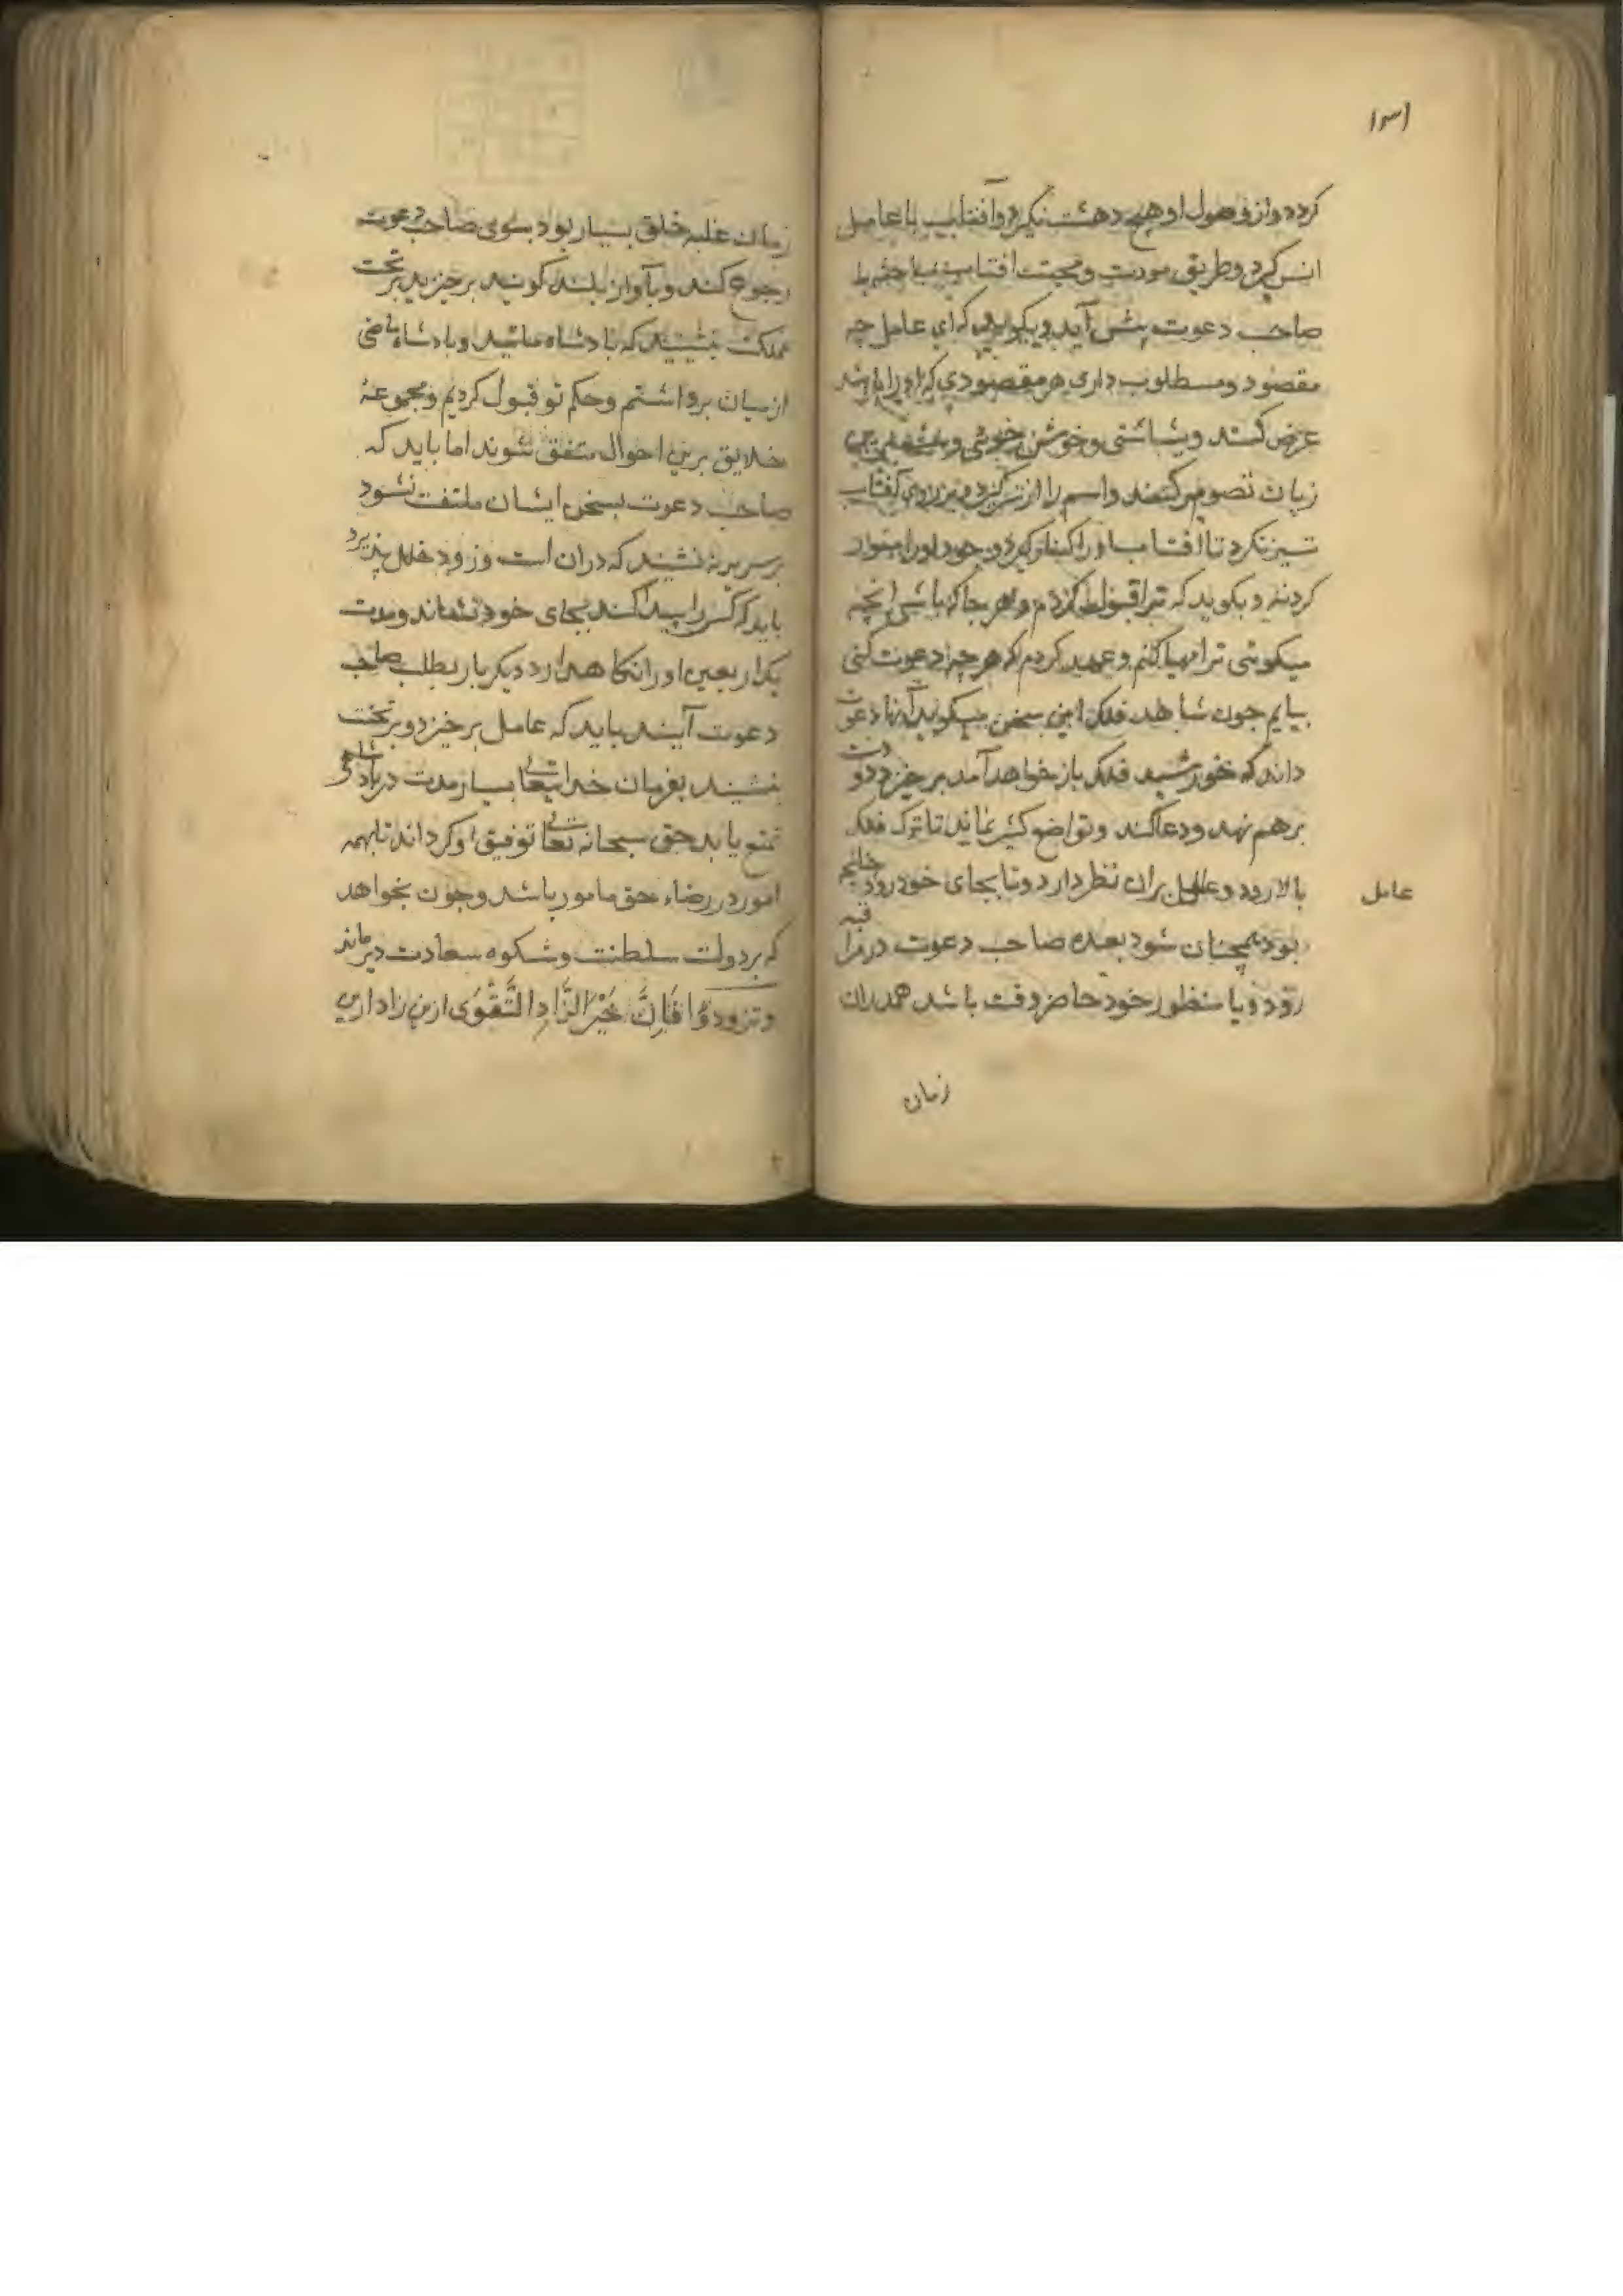 ۱۳۱
کردد واز وصول او هیچ دهشت نکیرد وآفتاب با عامل
انس کیرد وطریق مودت ومحبت افتاب
صاحب دعوت پیش آید وبکوید که ای عامل چه
مقصود ومطلوب داری هر مقصودی که او را باشد
عرض کند وبشاشتی وخوش خویی
زبان تصور کند واسم را از
تیز نکرد تا افتاب او را کنار کیرد وجود او را
کردند وبکوید که ترا قبول کردم وهر جا که باشی انچه
میکویی ترا مهیا کنم وعهد کردم که هر جا دعوت کنی
بیایم جون شاهد فلک این سخن بکوید دعوت
داند که خورشید فلک باز خواهد آمد بر خیزد دو دست
برهم نهد ودعا کند وتواضع کثیر نماید تا ترک فلک
بالا رود وعامل بران نظر دارد وتا بجای خود رود چنانچه
عامل
بود همچنان شود بعده صاحب دعوت در مراقبه
رود وبا منظور خود حاضر وقت باشد همدران
زمان
زمان غلبه خلق بسیار بود بسوی صاحب دعوت
رجوع کنند وبآواز بلند کویند برخیزید بر تخت
مملکت بنشینید که بادشاه مائید وبادشاه ماضی
از میان برداشتم وحکم تو قبول کردیم ومجموعهٔ
خلایق برین احوال متفق شوند اما باید که
صاحب دعوت بسخن ایشان ملتفت نشود
بر سریر نه نشیند که دران است وزود خلل پذیرد
باید که کسی را پیدا کند بجای خود نشاند ومدت
یک اربعین او را نکاه دارد دیکر بار بطلب صاحب
دعوت آیند باید که عامل برخیزد وبر تخت
نشیند بفرمان خدایتعالی بسیار مدت در بادشاهی
تمتع یابد حق سبحانه تعالی توفیق او کرداند تا بهمه
امور در رضاء حق مامور باشد وجون بخواهد
که بر دولت سلطنت وشکوه سعادت دیر ماند
وتزودوا فَاِنَّ خَیْرَ الزَّادِ التَّقْوَی ازین زاد